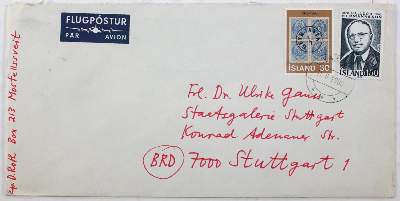 FLUGPÓSTUR
PAR AVION
ÍSLAND 30
ÍSLAND
Frl. Dr. Ulrike Gauss
Staatsgalerie Stuttgart
Konrad Adenauer Str.
BRD 7000 Stuttgart 1
D. Roth Box 213 Mosfellssveit